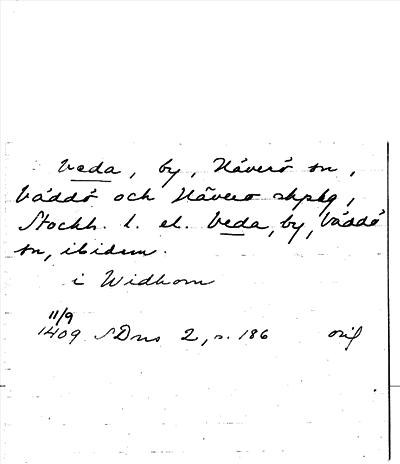 Veda, by, Häverö sn,
Väddö och Häverö skpbg,
Stockh. l. el. Veda, by, Väddö
sn, ibidem.
i Widhom
11/9
1409 SDns 2, s. 186 orig